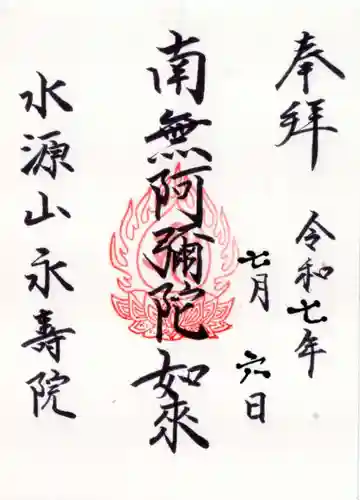 奉拝
令和七年
七月六日
南無阿彌陀如来
水源山永壽院